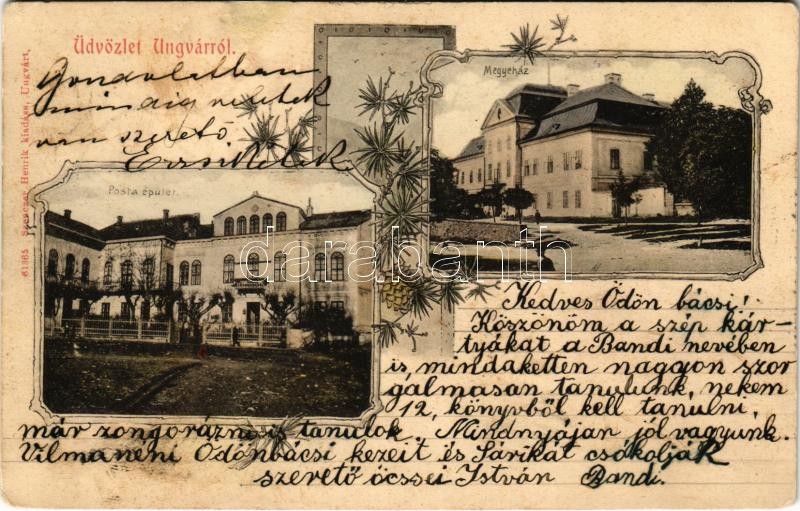 Üdvözlet Ungvárról.
Gondolatban
mindig veletek
van szerető
Erzsi
Posta épület.
Megyeház
61365
Henrik kiadása, Ungvárt.
darabanth
Kedves Ödön bácsi!
Köszönöm a szép kár-
tyákat a Bandi nevében
is, mindaketten naggon szor
galmasan tanulunk, nekem
12, könyvből kell tanulni,
már zongorázni is tanulok. Mindnyájan jól vagyunk.
Vilmaneni Ödönbácsi kezeit és Sárikat csókolják
szerető öcssei István Bandi.